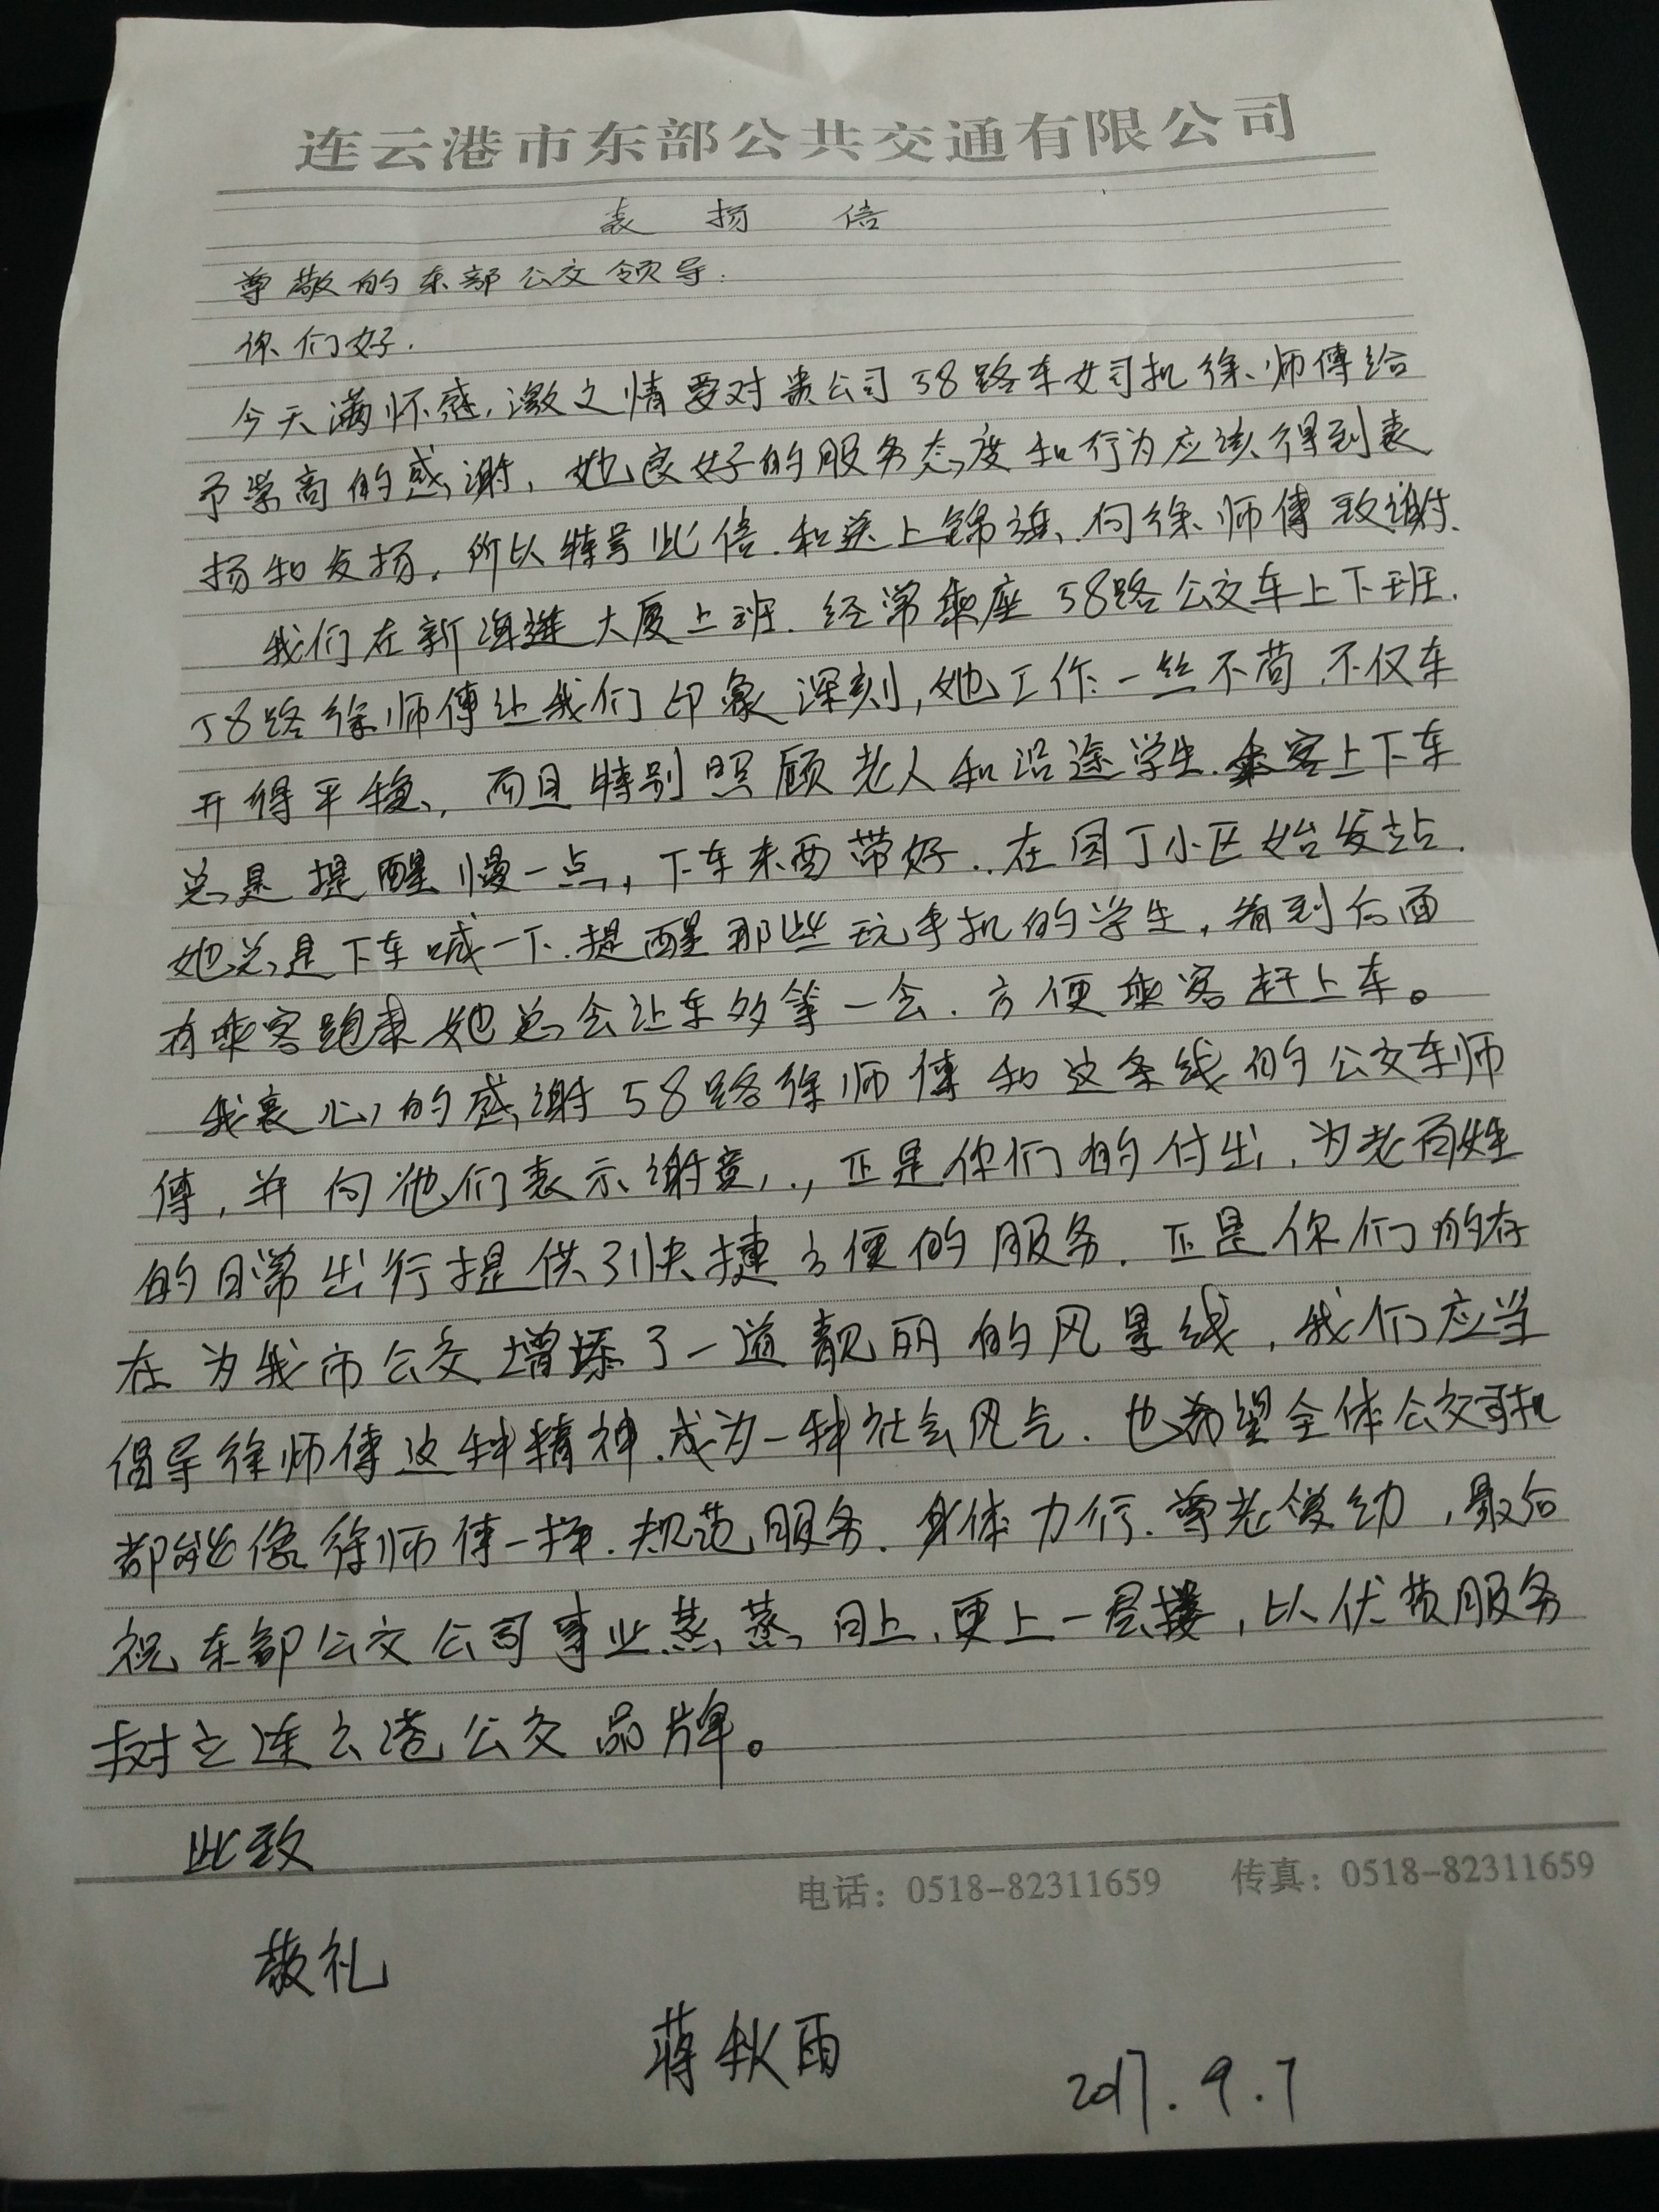 连云港市东部公共交通有限公司
表扬信
尊敬的东部公交领导：
你们好.
今天满怀感激之情要对贵公司58路车女司机徐师傅给
予崇高的感谢，她良好的服务态度和行为应该得到表
扬和发扬，所以特写此信.和送上锦旗、向徐师傅致谢.
我们在新海连大厦上班.经常乘座58路公交车上下班.
58路徐师傅让我们印象深刻，她工作一丝不苟.不仅车
开得平稳，而且特别照顾老人和沿途学生.乘客上下车
总是提醒慢一点，下车东西带好.在园丁小区始发站.
她总是下车喊一下.提醒那些玩手机的学生，看到后面
有乘客跑来她总会让车多等一会.方便乘客赶上车。
我衷心的感谢58路徐师傅和这条线的公交车师
傅，并向他们表示谢意，正是你们的付出，为老百姓
的日常出行提供了快捷方便的服务.正是你们的存
在为我市公交增添了一道靓丽的风景线，我们应当
倡导徐师傅这种精神.成为一种社会风气.也希望全体公交司机
都能像徐师傅一样.规范服务.身体力行.尊老爱幼，最后
祝东部公交公司事业蒸蒸日上，更上一层楼，以优质服务
树立连云港公交品牌。
此致
电话：0518-82311659 传真：0518-82311659
敬礼
蒋秋雨 2017.9.7